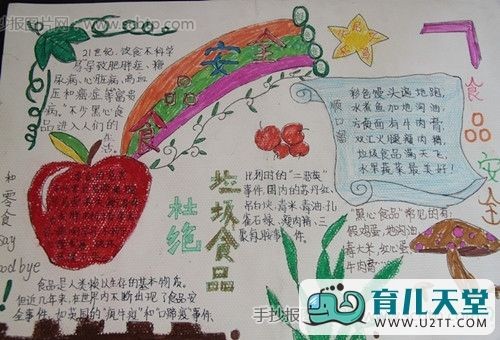 手抄报图片网-www.scbtp.com
21世纪,饮食不科学
易导致肥胖症、糖
尿病、心脏病、高血
压和癌症等富贵
病。"不少黑心食
品进入人们的
食品安全
和
零食
say
goodbye
!
杜绝
垃圾食品
食品是人类赖以生存的基本物质。
但近几年来,在世界内不断出现了食品安
全事件。如英国的"疯牛皮"和"口蹄疫"事件
比利时的"二恶英"
事件,国内的苏丹红、
吊白块、毒米、毒油、孔
雀石绿、瘦肉精、三
聚氰胺事件。
顺口溜
彩色馒头遍地跑,
水煮鱼加地沟油,
方便面有牛肉膏,
双汇火腿瘦肉精,
垃圾食品满天飞,
水果蔬菜最美好!
食品安全
"黑心食品"常见的有:
假鸡蛋、地沟油、
毒大米、红心蛋、
牛肉膏
手抄
育儿天堂
www.U2TT.com